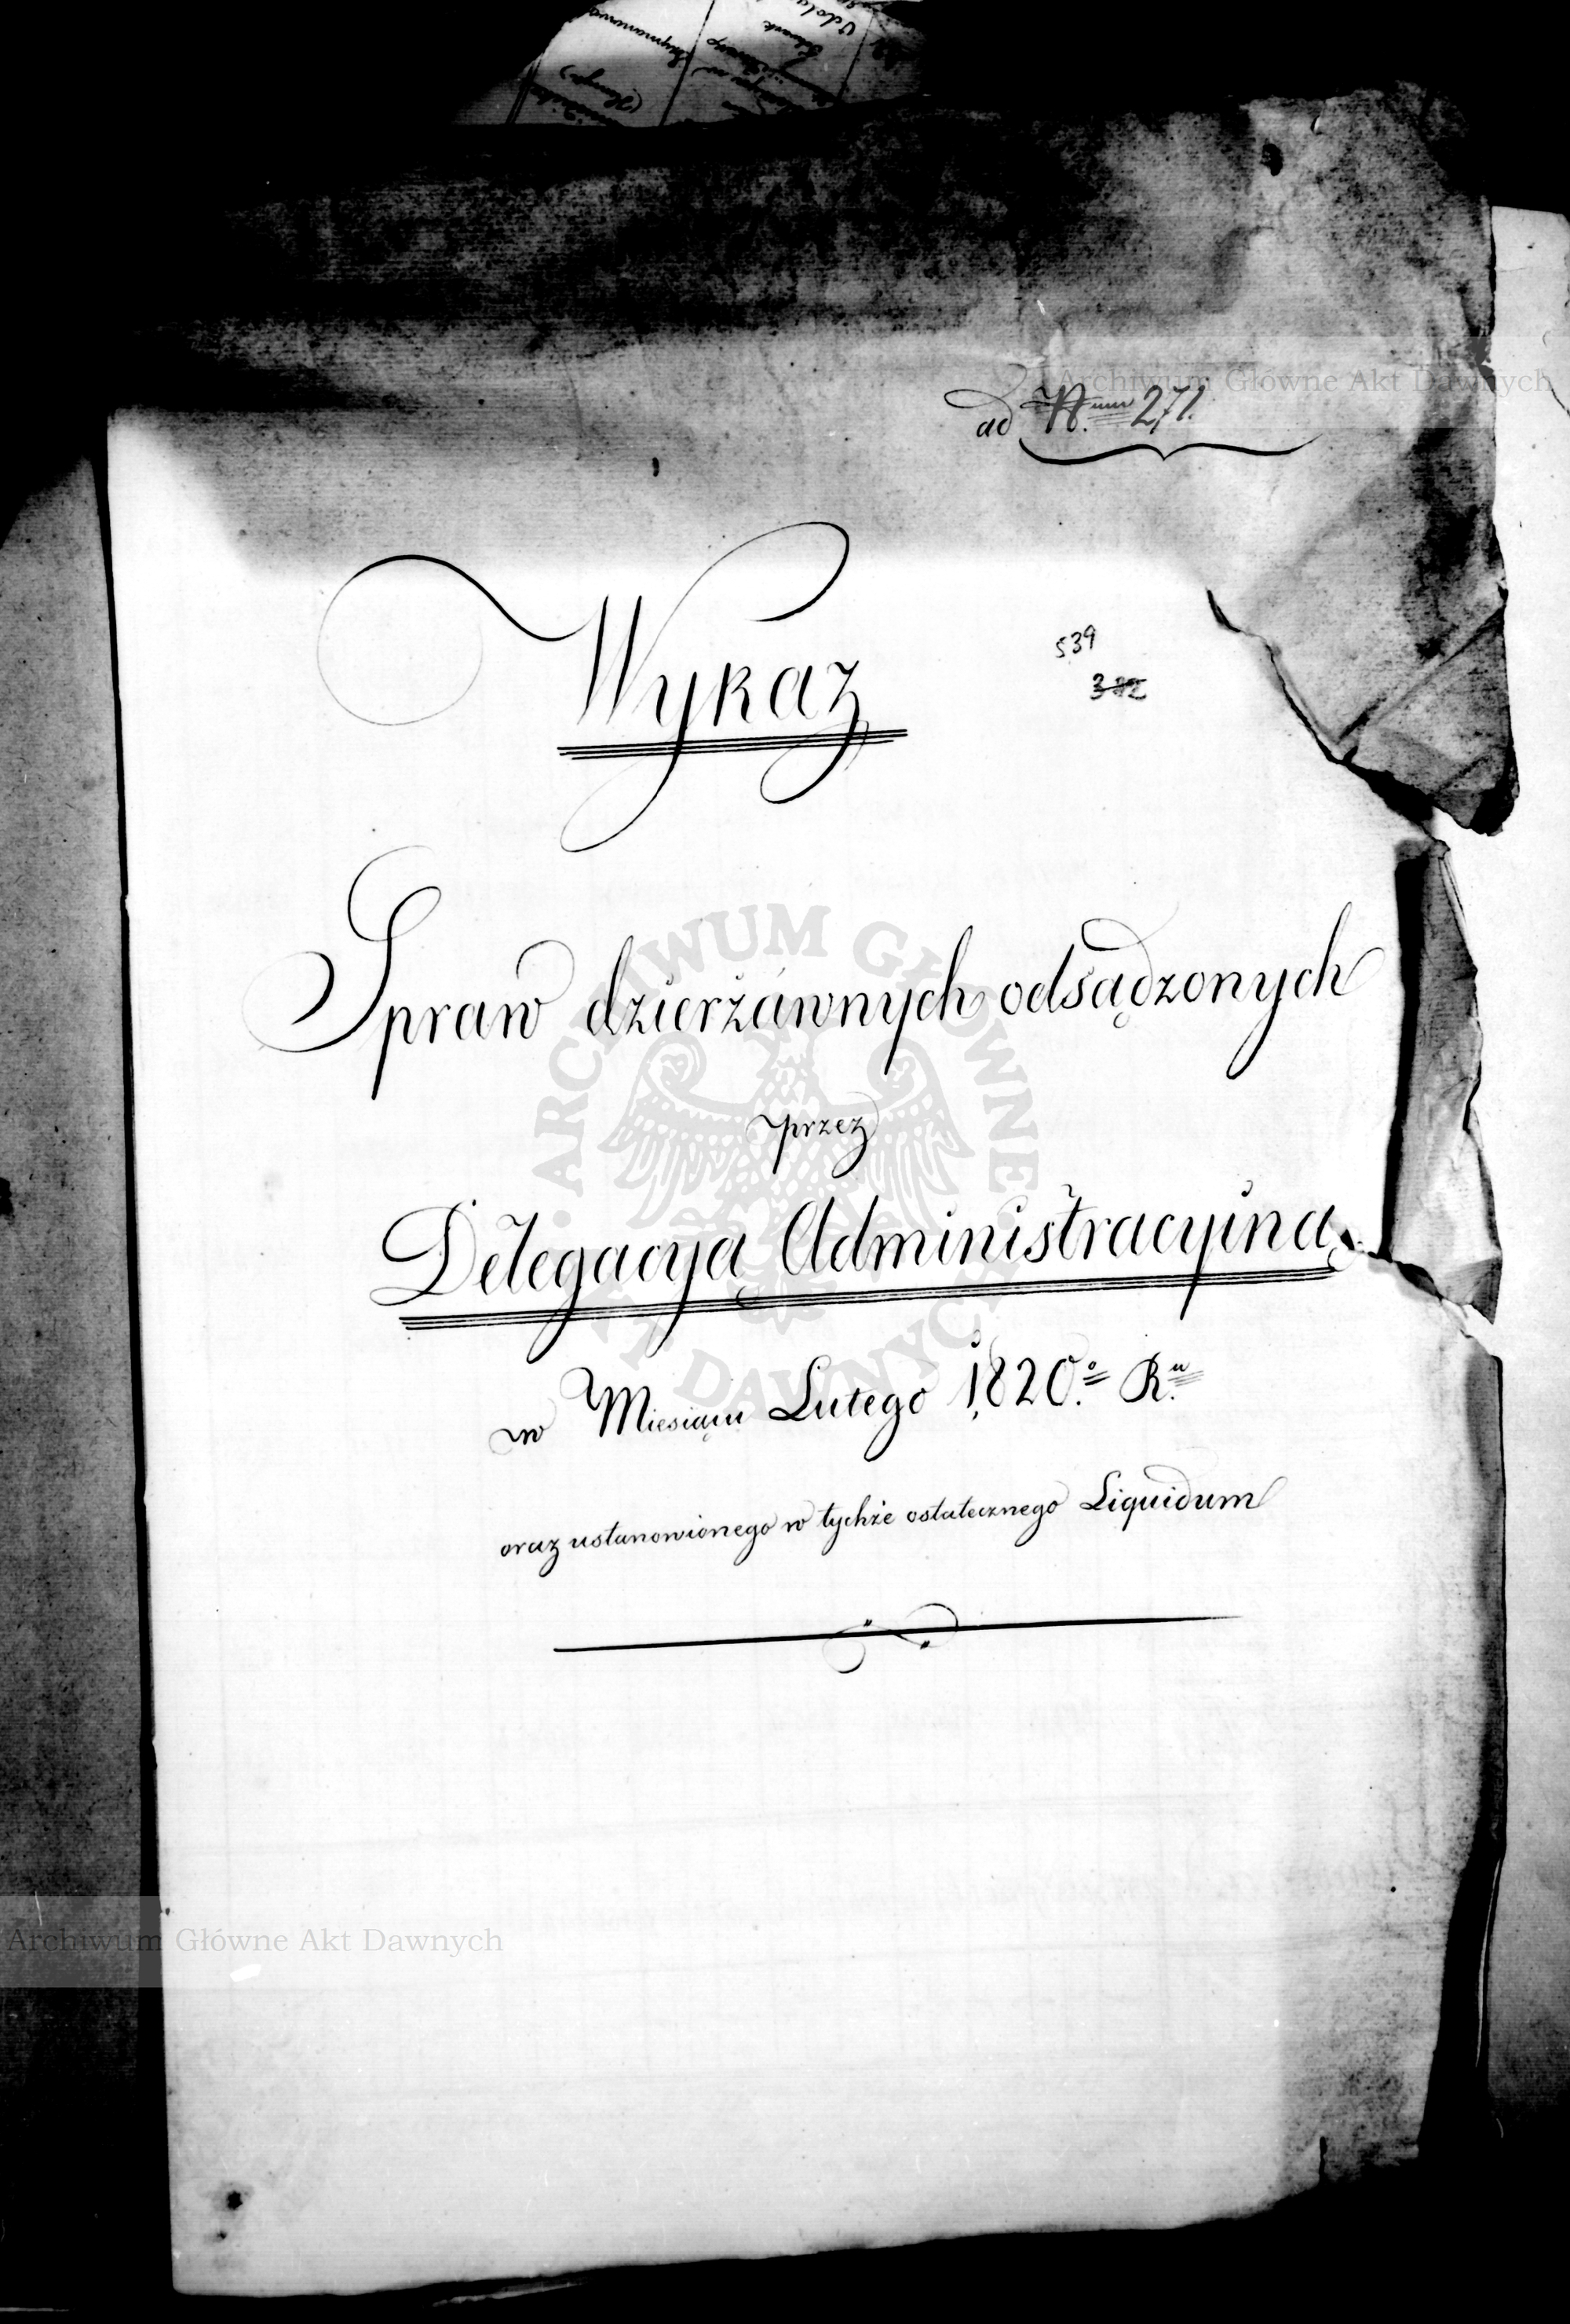 ad N.um 271.
Wykaz
539
382
Spraw dzierżawnych odsądzonych
przez
Delegacyą Administracyiną
w Miesiącu Lutego 1820.o R.u
oraz ustanowionego w tychże ostatecznego Liquidum
Archiwum Główne Akt Dawnych
ARCHIWUM GŁÓWNE
AKT DAWNYCH
Archiwum Główne Akt Dawnych